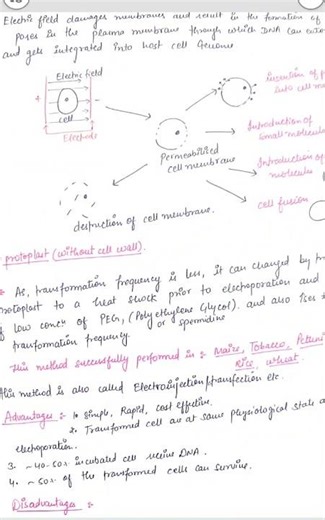 Electric field damages membranes and result in the formation of
pores in the plasma membrane through which DNA can enter
and gets integrated into host cell Genome
Electric field
cell
Electrode
Insertion of p
into cell me
Introduction of
small molecule
Permeabilised
cell membrane
Introduction of
molecules
cell fusion
destruction of cell membrane.
protoplast (without cell wall).
As, transformation frequency is less, it can changed by
protoplast to a heat shock prior to electroporation and
low concn of PEG, (Poly ethylene Glycol). and also
or spermidine
transformation frequency.
This method successfully performed in :- Maize, Tobacco, Petuni
Rice, wheat.
This method is also called Electroinjection/transfection etc.
Advantages :- 1. Simple, Rapid, cost effective.
2. Transformed cell are at same physiological state a
electroporation.
3. ~40-50% incubated cell DNA.
4. ~50% of the transformed cells can survive.
Disadvantages :-